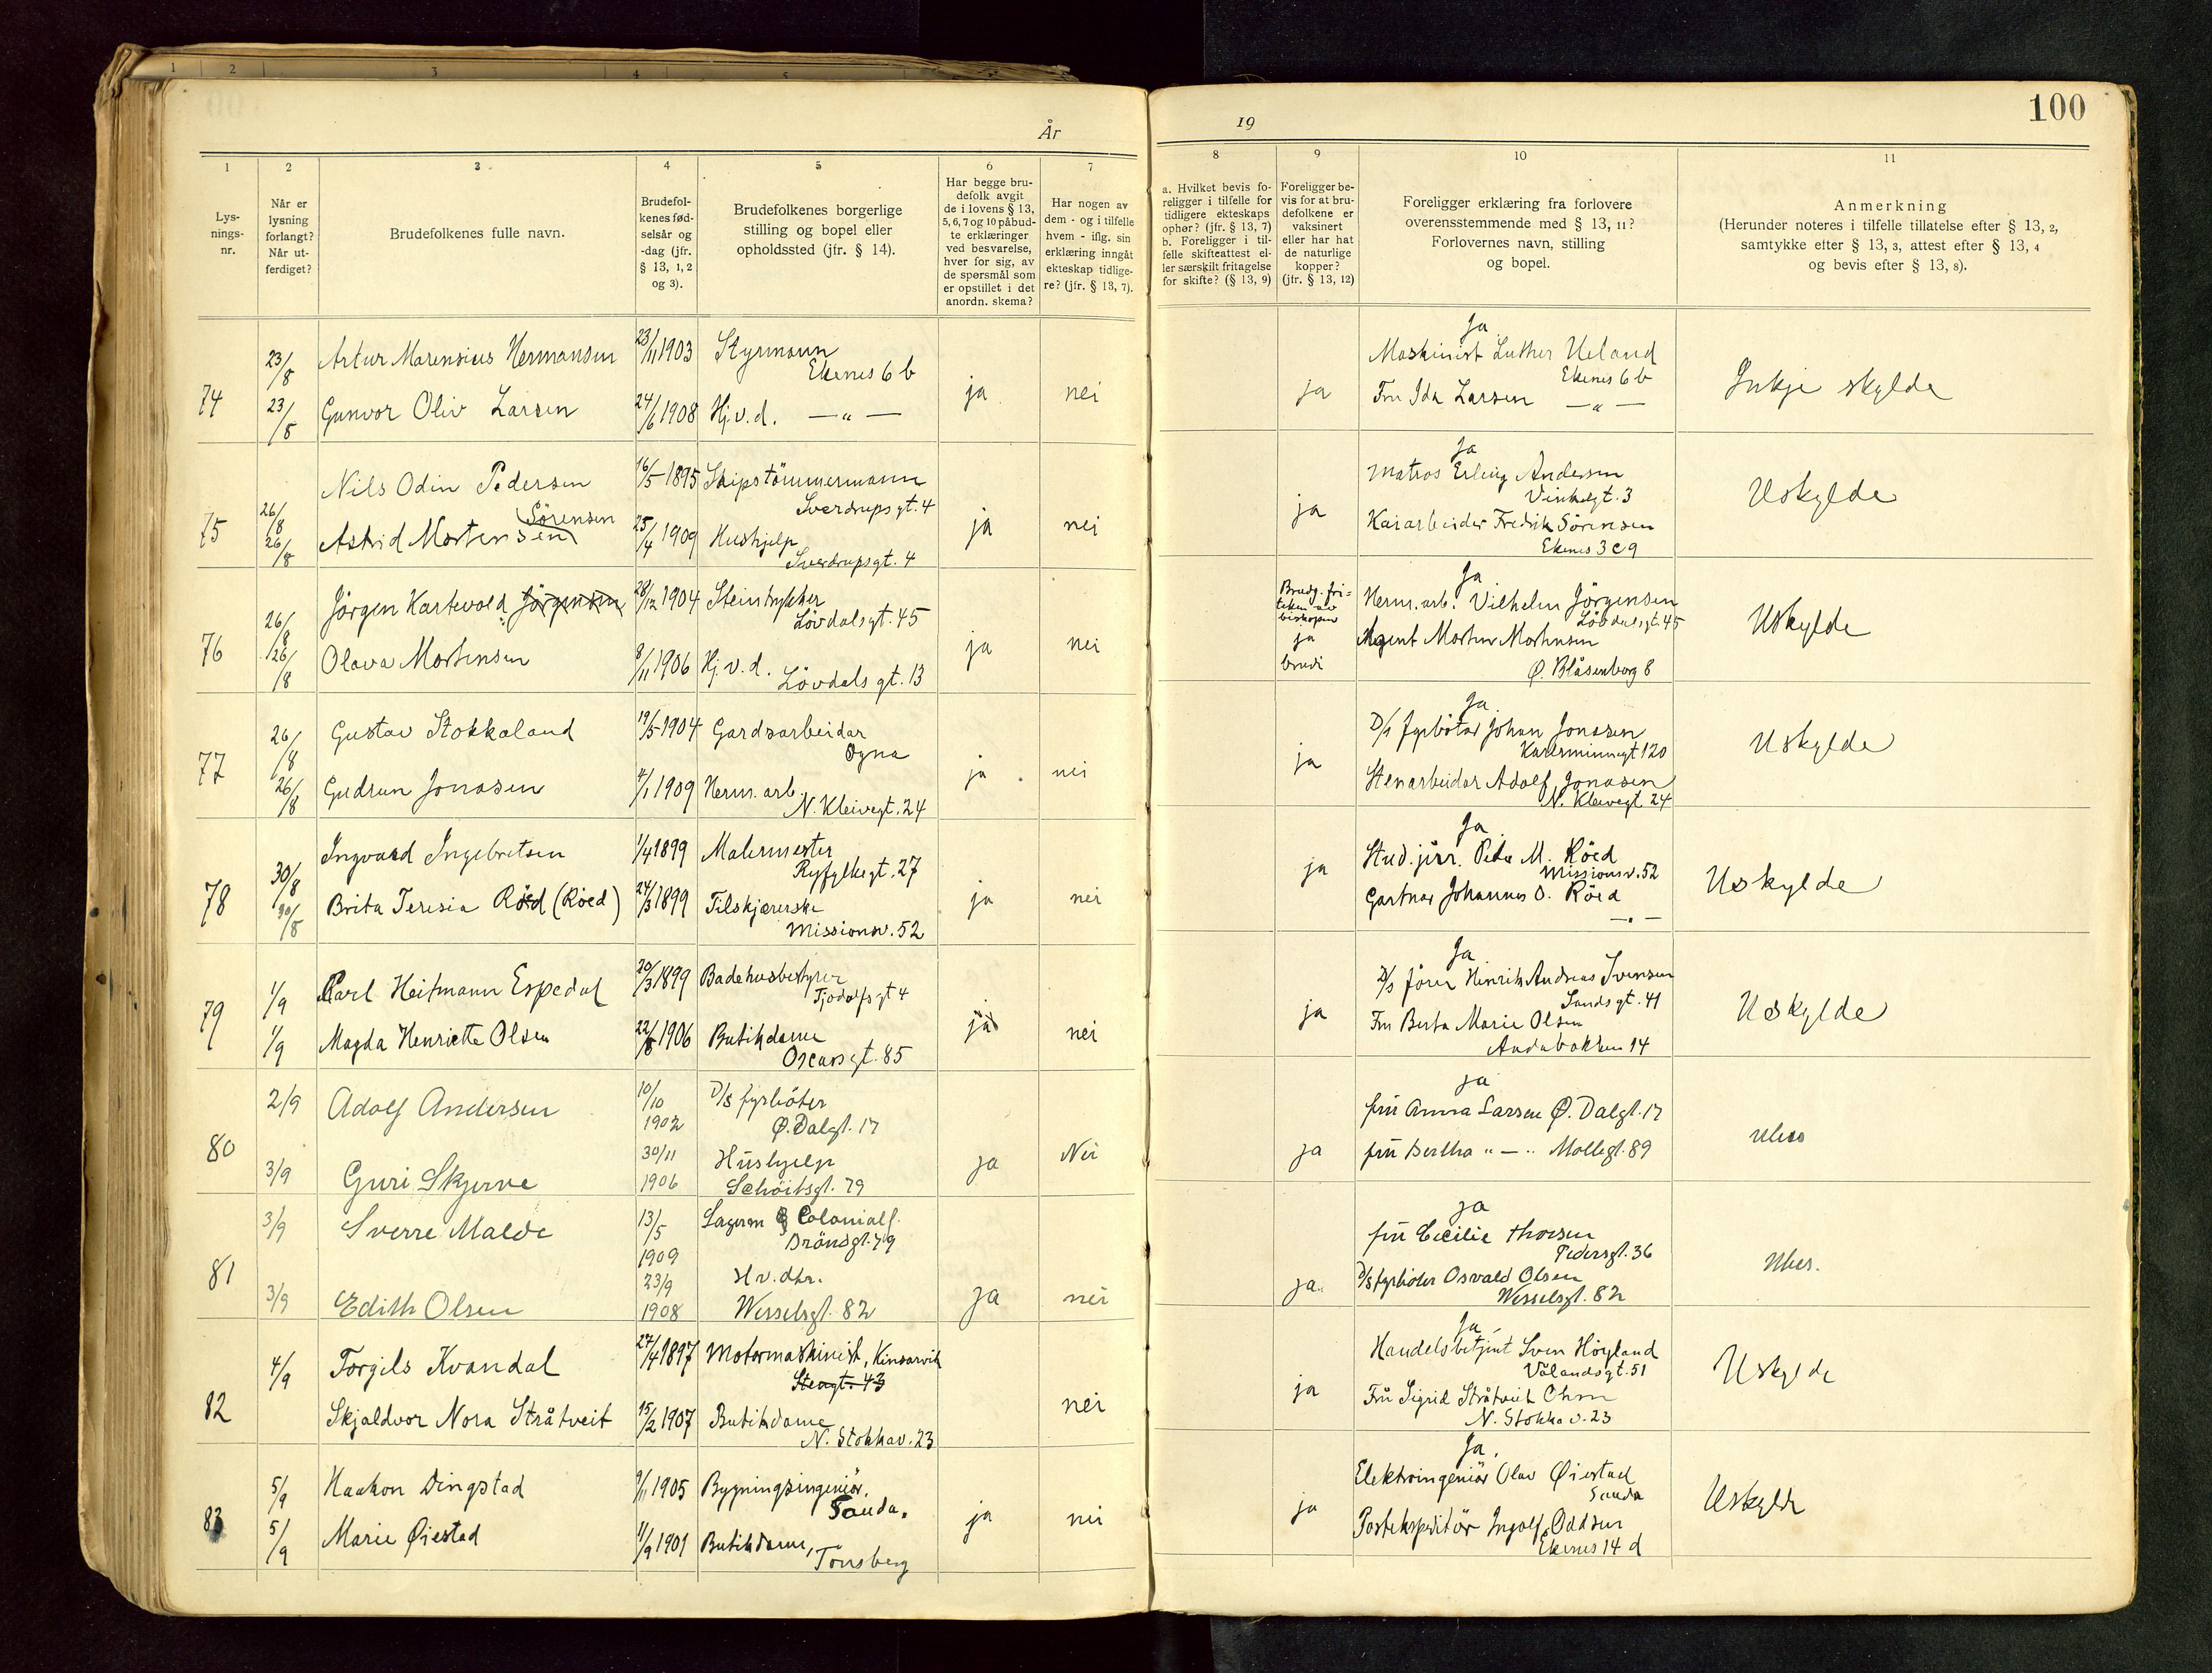 1 2 3 4 5
År
19
100
1 2 3 4 5 6 7 8 9 10 11
Lys-
nings-
nr.
Når er
lysning
forlangt?
Når ut-
ferdiget?
Brudefolkenes fulle navn.
Brudefol-
kenes fød-
selsår og
-dag (jfr.
§ 13, 1, 2
og 3).
Brudefolkenes borgerlige
stilling og bopel eller
opholdssted (jfr. § 14).
Har begge bru-
defolk avgit
de i lovens § 13,
5, 6, 7 og 10 påbud-
te erklæringer
ved besvarelse,
hver for sig, av
de spørsmål som
er opstillet i det
anordn. skema?
Har nogen av
dem - og i tilfelle
hvem - iflg. sin
erklæring inngåt
ekteskap tidlige-
re? (jfr. § 13, 7).
a. Hvilket bevis fo-
religger i tilfelle for
tidligere ekteskaps
ophør? (jfr. § 13, 7)
b. Foreligger i til-
felle skifteattest el-
ler særskilt fritagelse
for skifte? (§ 13, 9)
Foreligger be-
vis for at bru-
defolkene er
vaksinert
eller har hat
de naturlige
kopper?
(jfr. § 13, 12)
Foreligger erklæring fra forlovere
overensstemmende med § 13, 11?
Forlovernes navn, stilling
og bopel.
Anmerkning
(Herunder noteres i tilfelle tillatelse efter § 13, 2,
samtykke efter § 13, 3, attest efter § 13, 4
og bevis efter § 13, 8).
74
23/8
23/8
Artur Marensius Hermansen
Gunvor Oliv Larsen
23/11 1903
24/6 1908
Styrmann
Ekenes 6 b
Hj.v.d. — " —
ja
nei
ja
Ja
Maskinist Luther Ueland
Ekenes 6 b
Fru Ida Larsen — " —
Inkje skylde
75
26/8
26/8
Nils Odin Pedersen
Sörensen
Astrid Mortensen
16/5 1895
25/4 1909
Skipstömmermann
Sverdrups gt. 4
Hushjelp
Sverdrupsgt. 4
ja
nei
ja
Ja
Matros Erling Andersen
Vinkelgt. 3
Kaiarbeider Fredrik Sörensen
Ekenes 3 c 9
Uskylde
76
26/8
26/8
Jörgen Kartevold Jörgensen
Olava Mortensen
28/12 1904
8/11 1906
Steintrykker
Lövdalsgt. 45
Hj.v.d.
Lövdals gt. 13
ja
nei
Brudg. fri=
teken av
biskopen
ja
brudi
Ja
Herm. arb. Vilhelm Jörgensen
Lövdalsgt. 45
Agent Morten Mortensen
Ø. Blåsenborg 8
Uskylde
77
26/8
26/8
Gustav Stokkaland
Gudrun Jonasen
19/5 1904
4/1 1909
Gardsarbeidar
Ogna
Herm. arb.
N. Kleivegt. 24
ja
nei
ja
Ja
D/s fyrbötar Johan Jonasen
Karlsminnegt 120
Stenarbeidar Adolf Jonasen
N. Kleivegt. 24
Uskylde
78
30/8
30/8
Ingvard Ingebretsen
Brita Teresia Röed (Röed)
1/4 1899
24/3 1899
Malermester
Ryfylkegt. 27
Tilskjærerske
Missionsv. 52
ja
nei
ja
Ja
Stud. jur. Peder M. Röed
Missionsv. 52
Gartnar Johannes O. Röed
— " —
Uskylde
79
1/9
1/9
Karl Heitmann Espedal
Magda Henriette Olsen
20/3 1899
22/8 1906
Badehusbestyrer
Tjodolfsgt 4
Butikdame
Oscarsgt. 85
ja
nei
ja
Ja
D/s förer Henrik Andreas Svensen
Sandsgt. 41
Fru Berta Marie Olsen
Andabakken 14
Uskylde
80
2/9
3/9
Adolf Andersen
Guri Skjerve
10/10
1902
30/11
1906
D/s fyrböter
Ø. Dalgt. 17
Hushjelp
Schöitsgt. 79
ja
Nei
ja
ja
fru Anna Larsen Ø. Dalgt. 17
fru Bertha " — " Möllegt. 89
Ubes
81
3/9
3/9
Sverre Malde
Edith Olsen
13/5
1909
23/9
1908
Lagerm Colonialf.
Bröndgt. 79
H v. dtr.
Wesselsgt. 82
ja
nei
ja
ja
fru Cecilie Thorsen
Pedersgt. 36
D/s fyrböter Osvald Olsen
Wesselsgt. 82
Ubes.
82
4/9
Torgils Kvandal
Skjaldvor Nora Stråtveit
27/4 1897
15/2 1907
Motormaskinist, Kinsarvik
Stengt. 43
Butikdame
N. Stokkav. 23
nei
ja
Ja
Handelsbetjent Sven Höyland
Vålandsgt. 51
Fru Sigrid Stråtveit Ohm
N. Stokka v. 23
Uskylde
83
5/9
5/9
Haakon Dingstad
Marie Øiestad
9/11 1905
1/9 1901
Bygningsingeniör.
Sauda.
Butikdame,
Tönsberg
ja
nei
ja
Ja.
Elektroingeniör Olav Øiestad
Sauda
Postekspeditör Ingolf Oddsen
Ekenes 14 d
Uskylde